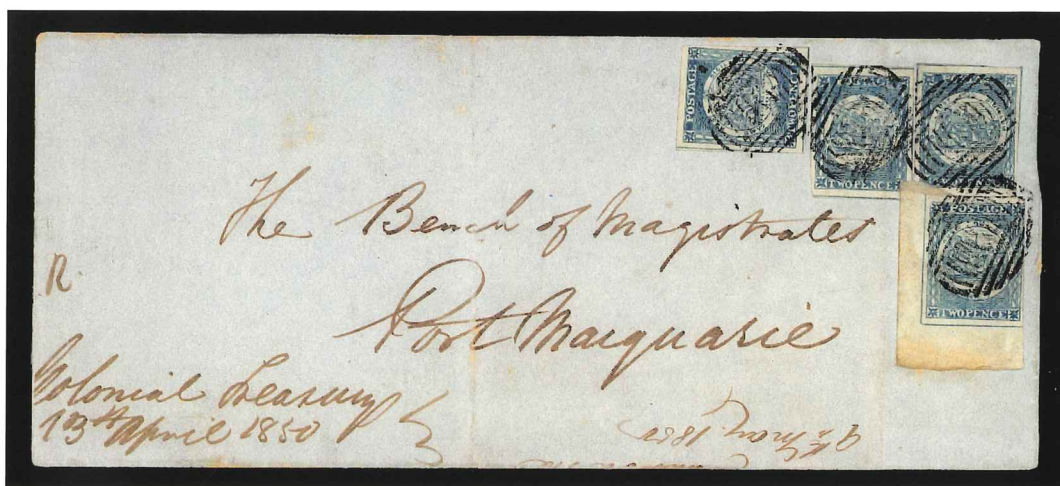 POSTAGE TWO PENCE
TWO PENCE
POSTAGE
TWO PENCE
The Bench of Magistrates
R
Port Macquarie
Colonial Treasury
13th April 1850
9th May 1850